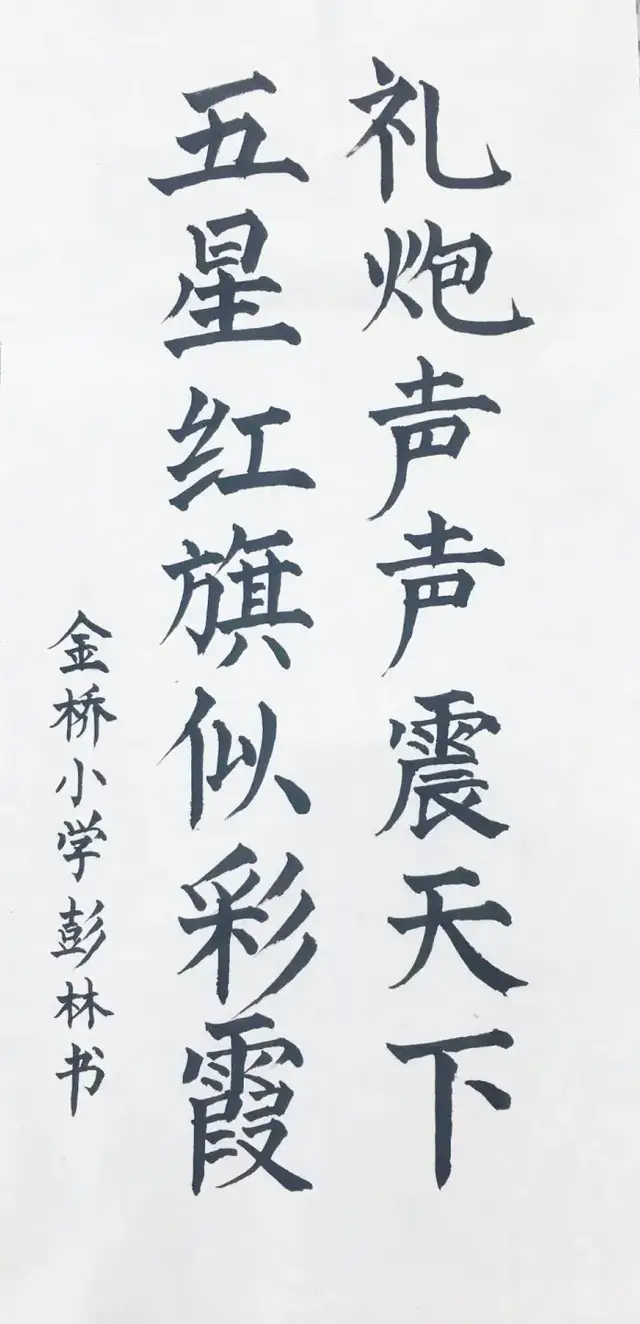 礼炮声声震天下
五星红旗似彩霞
金桥小学彭林书